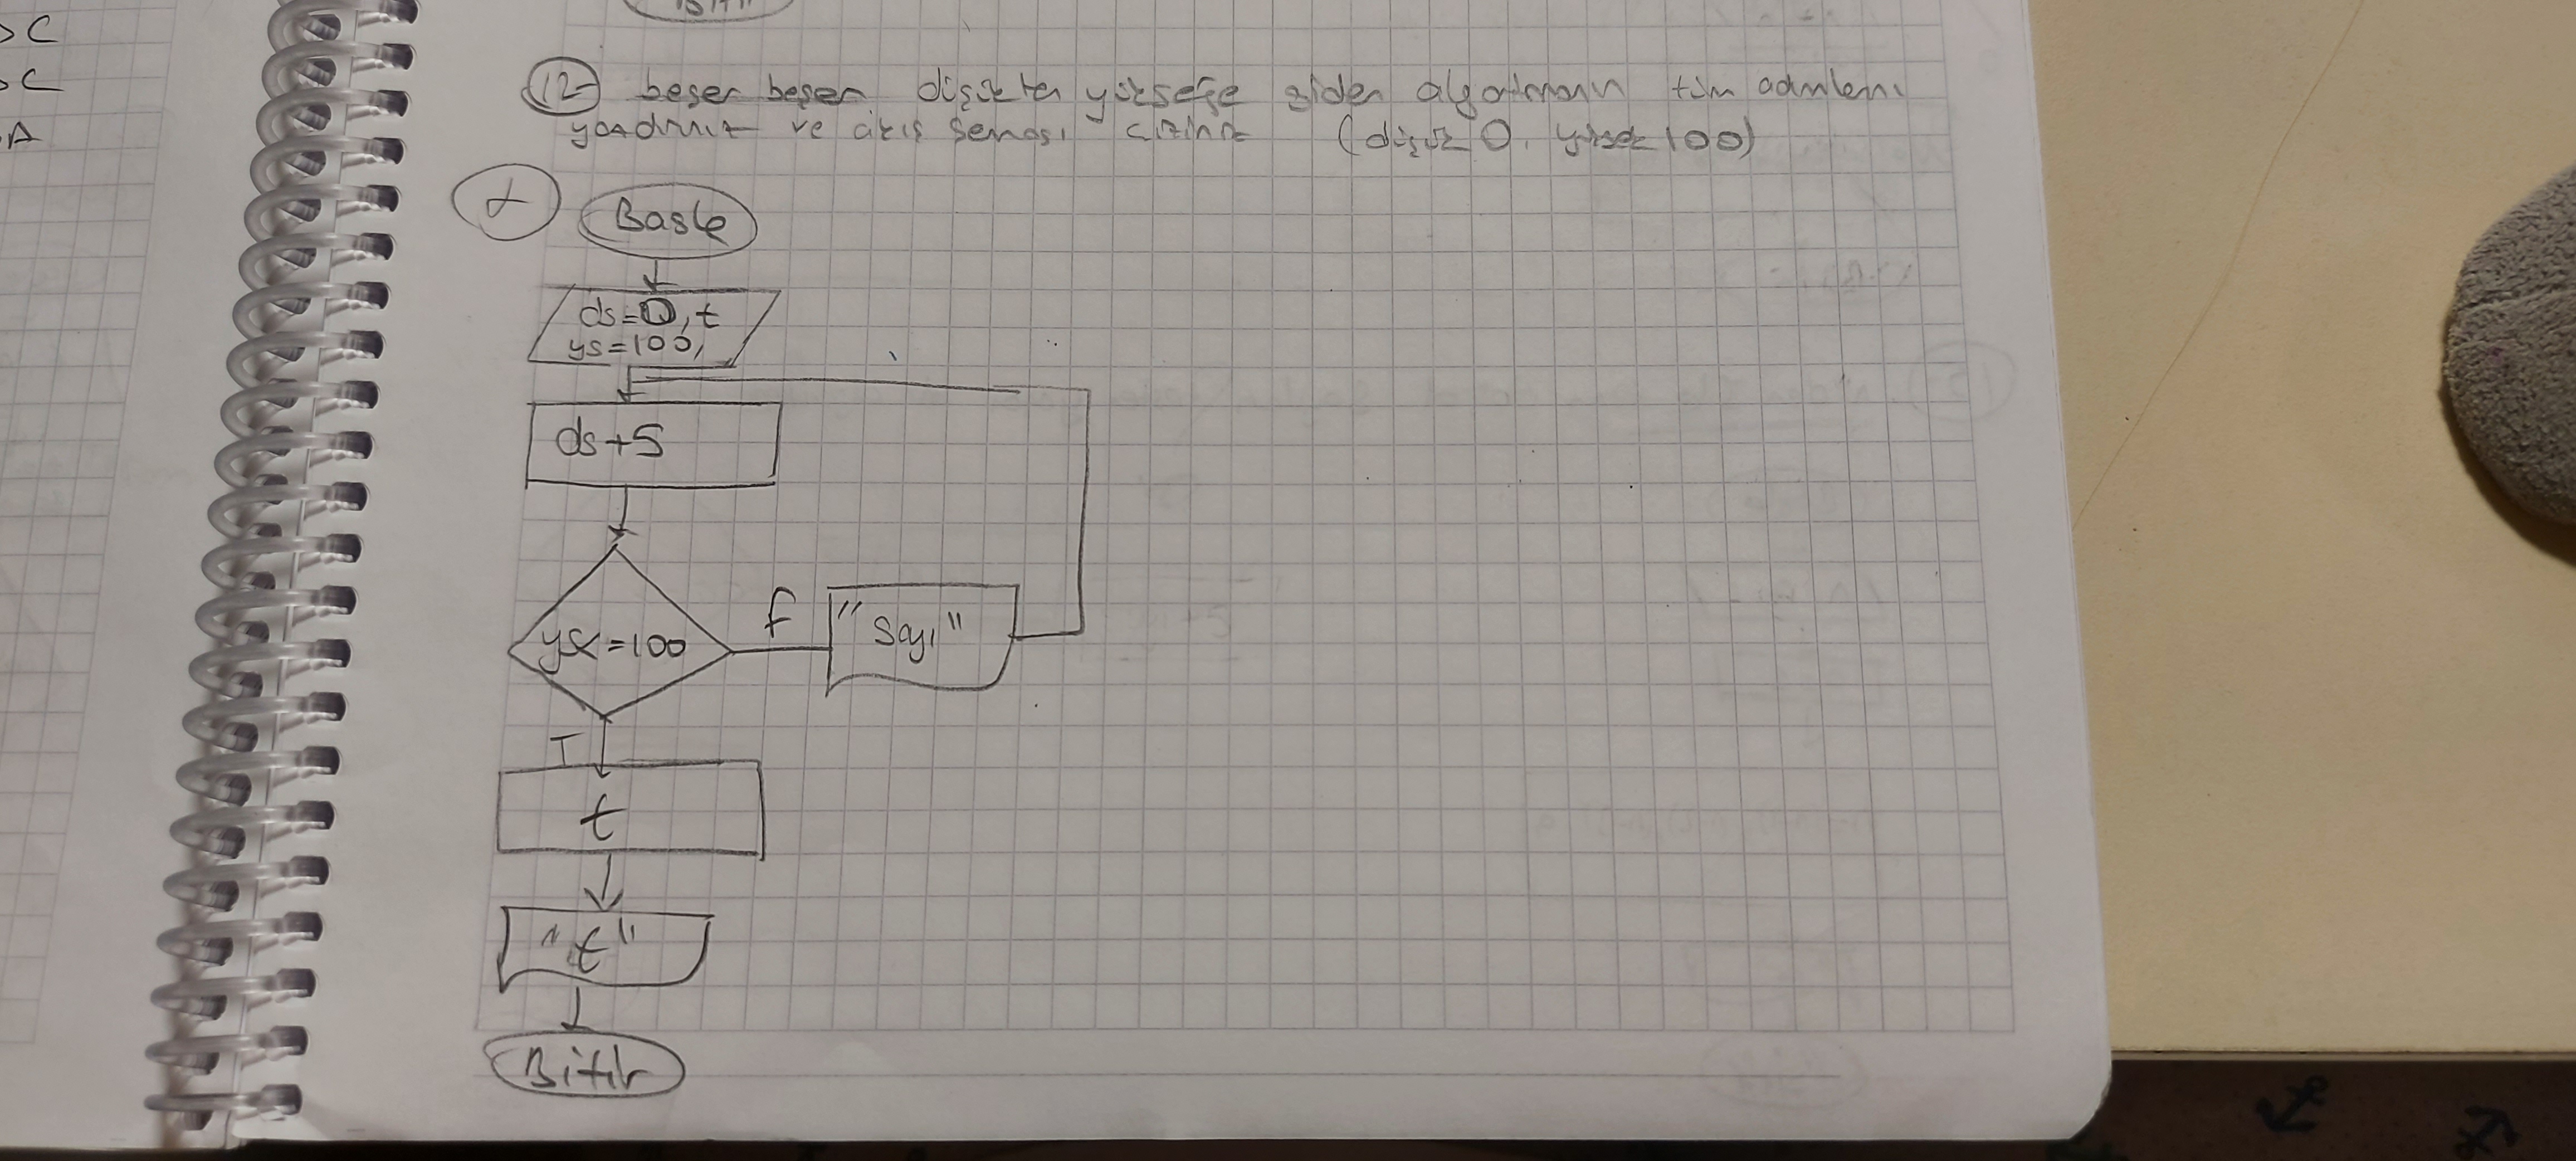 > C
> C
A
12- beşer beşer düşükten yükseğe giden algoritmanın tüm adımlarını
yazdırınız ve akış şeması çiziniz (düşük=0, yüksek=100)
Başla
ds=0, t
ys=100,
ds+5
=100
f
"Sayı"
T
t
"t"
Bitti